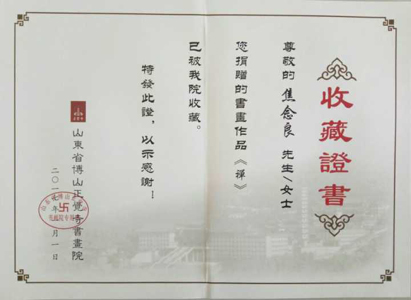 收藏證書
尊敬的 焦念良 先生/女士
您捐贈的書畫作品《禪》
已被我院收藏。
特發此證，以示感謝！
山東省博山正覺寺書畫院